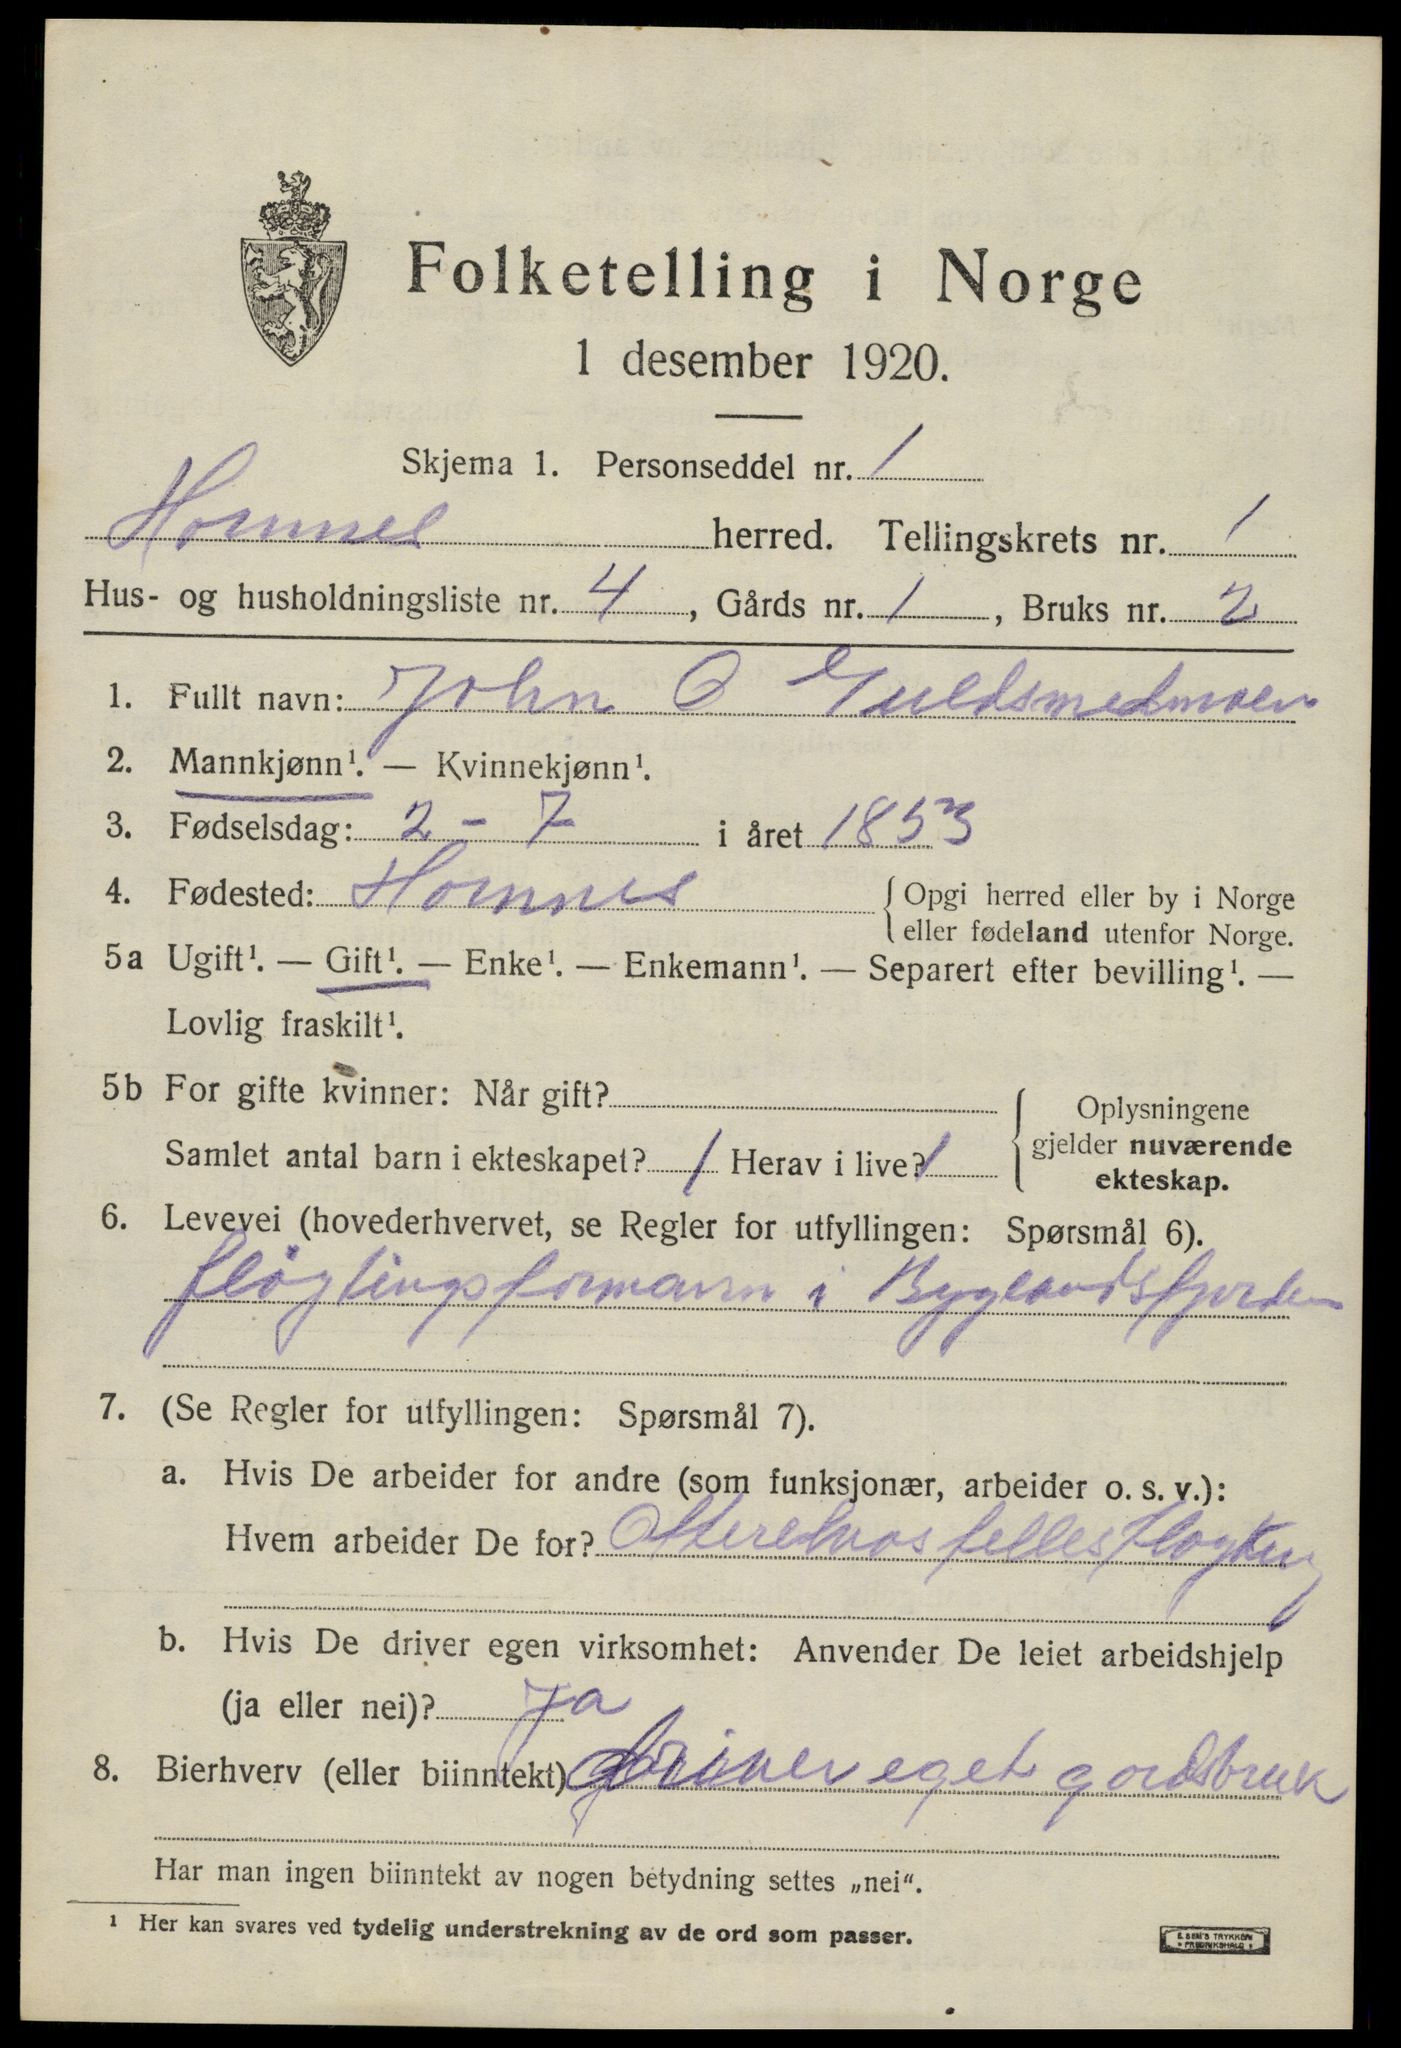 Folketelling i Norge
1 desember 1920.
Skjema 1. Personseddel nr. 1
Hornnes herred. Tellingskrets nr. 1
Hus- og husholdningsliste nr. 4, Gårds nr. 1, Bruks nr. 2
1. Fullt navn: John O Guldsmedmoen
2. Mannkjønn¹. — Kvinnekjønn¹.
3. Fødselsdag: 2 - 7 i året 1853
4. Fødested: Hornnes { Opgi herred eller by i Norge
eller fødeland utenfor Norge.
5a Ugift¹. — Gift¹. — Enke¹. — Enkemann¹. — Separert efter bevilling¹. —
Lovlig fraskilt¹.
5b For gifte kvinner: Når gift?
Samlet antal barn i ekteskapet? 1 Herav i live? 1
{ Oplysningene
gjelder nuværende
ekteskap.
6. Levevei (hovederhvervet, se Regler for utfyllingen: Spørsmål 6).
fløgtingsformann i Byglandsfjorden
7. (Se Regler for utfyllingen: Spørsmål 7).
a. Hvis De arbeider for andre (som funksjonær, arbeider o. s. v.):
Hvem arbeider De for? Otterelvas felles fløgting
b. Hvis De driver egen virksomhet: Anvender De leiet arbeidshjelp
(ja eller nei)? Ja
8. Bierhverv (eller biinntekt) driver eget gordsbruk
Har man ingen biinntekt av nogen betydning settes „nei“.
¹ Her kan svares ved tydelig understrekning av de ord som passer.
E. SEM'S TRYKKERI
• FREDRIKSHALD •